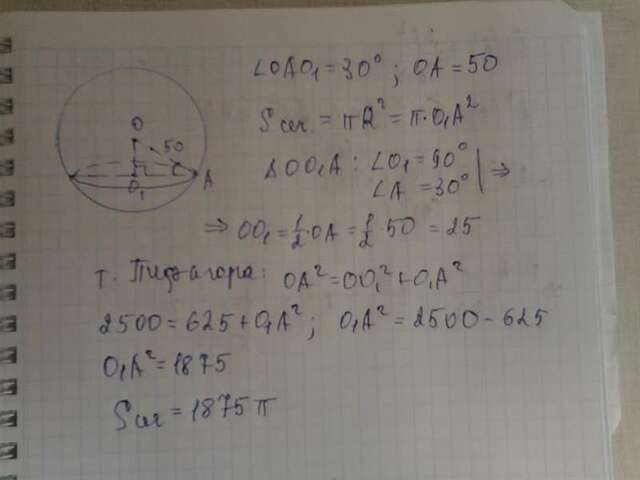 ∠OAO₁ = 30° ; OA = 50
O
50
A
O₁
Sсеч. = πR² = π·O₁A²
ΔOO₁A : ∠O₁ = 90°
∠A = 30° | ⇒
⇒ OO₁ = 1/2 · OA = 1/2 · 50 = 25
т. Пифагора: OA² = OO₁² + O₁A²
2500 = 625 + O₁A² ; O₁A² = 2500 - 625
O₁A² = 1875
Sсеч = 1875π